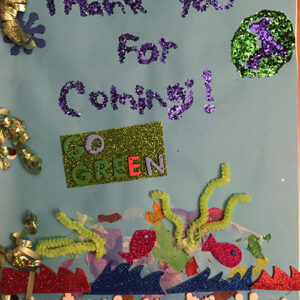 Thank You
For
Coming!!
GO
GREEN